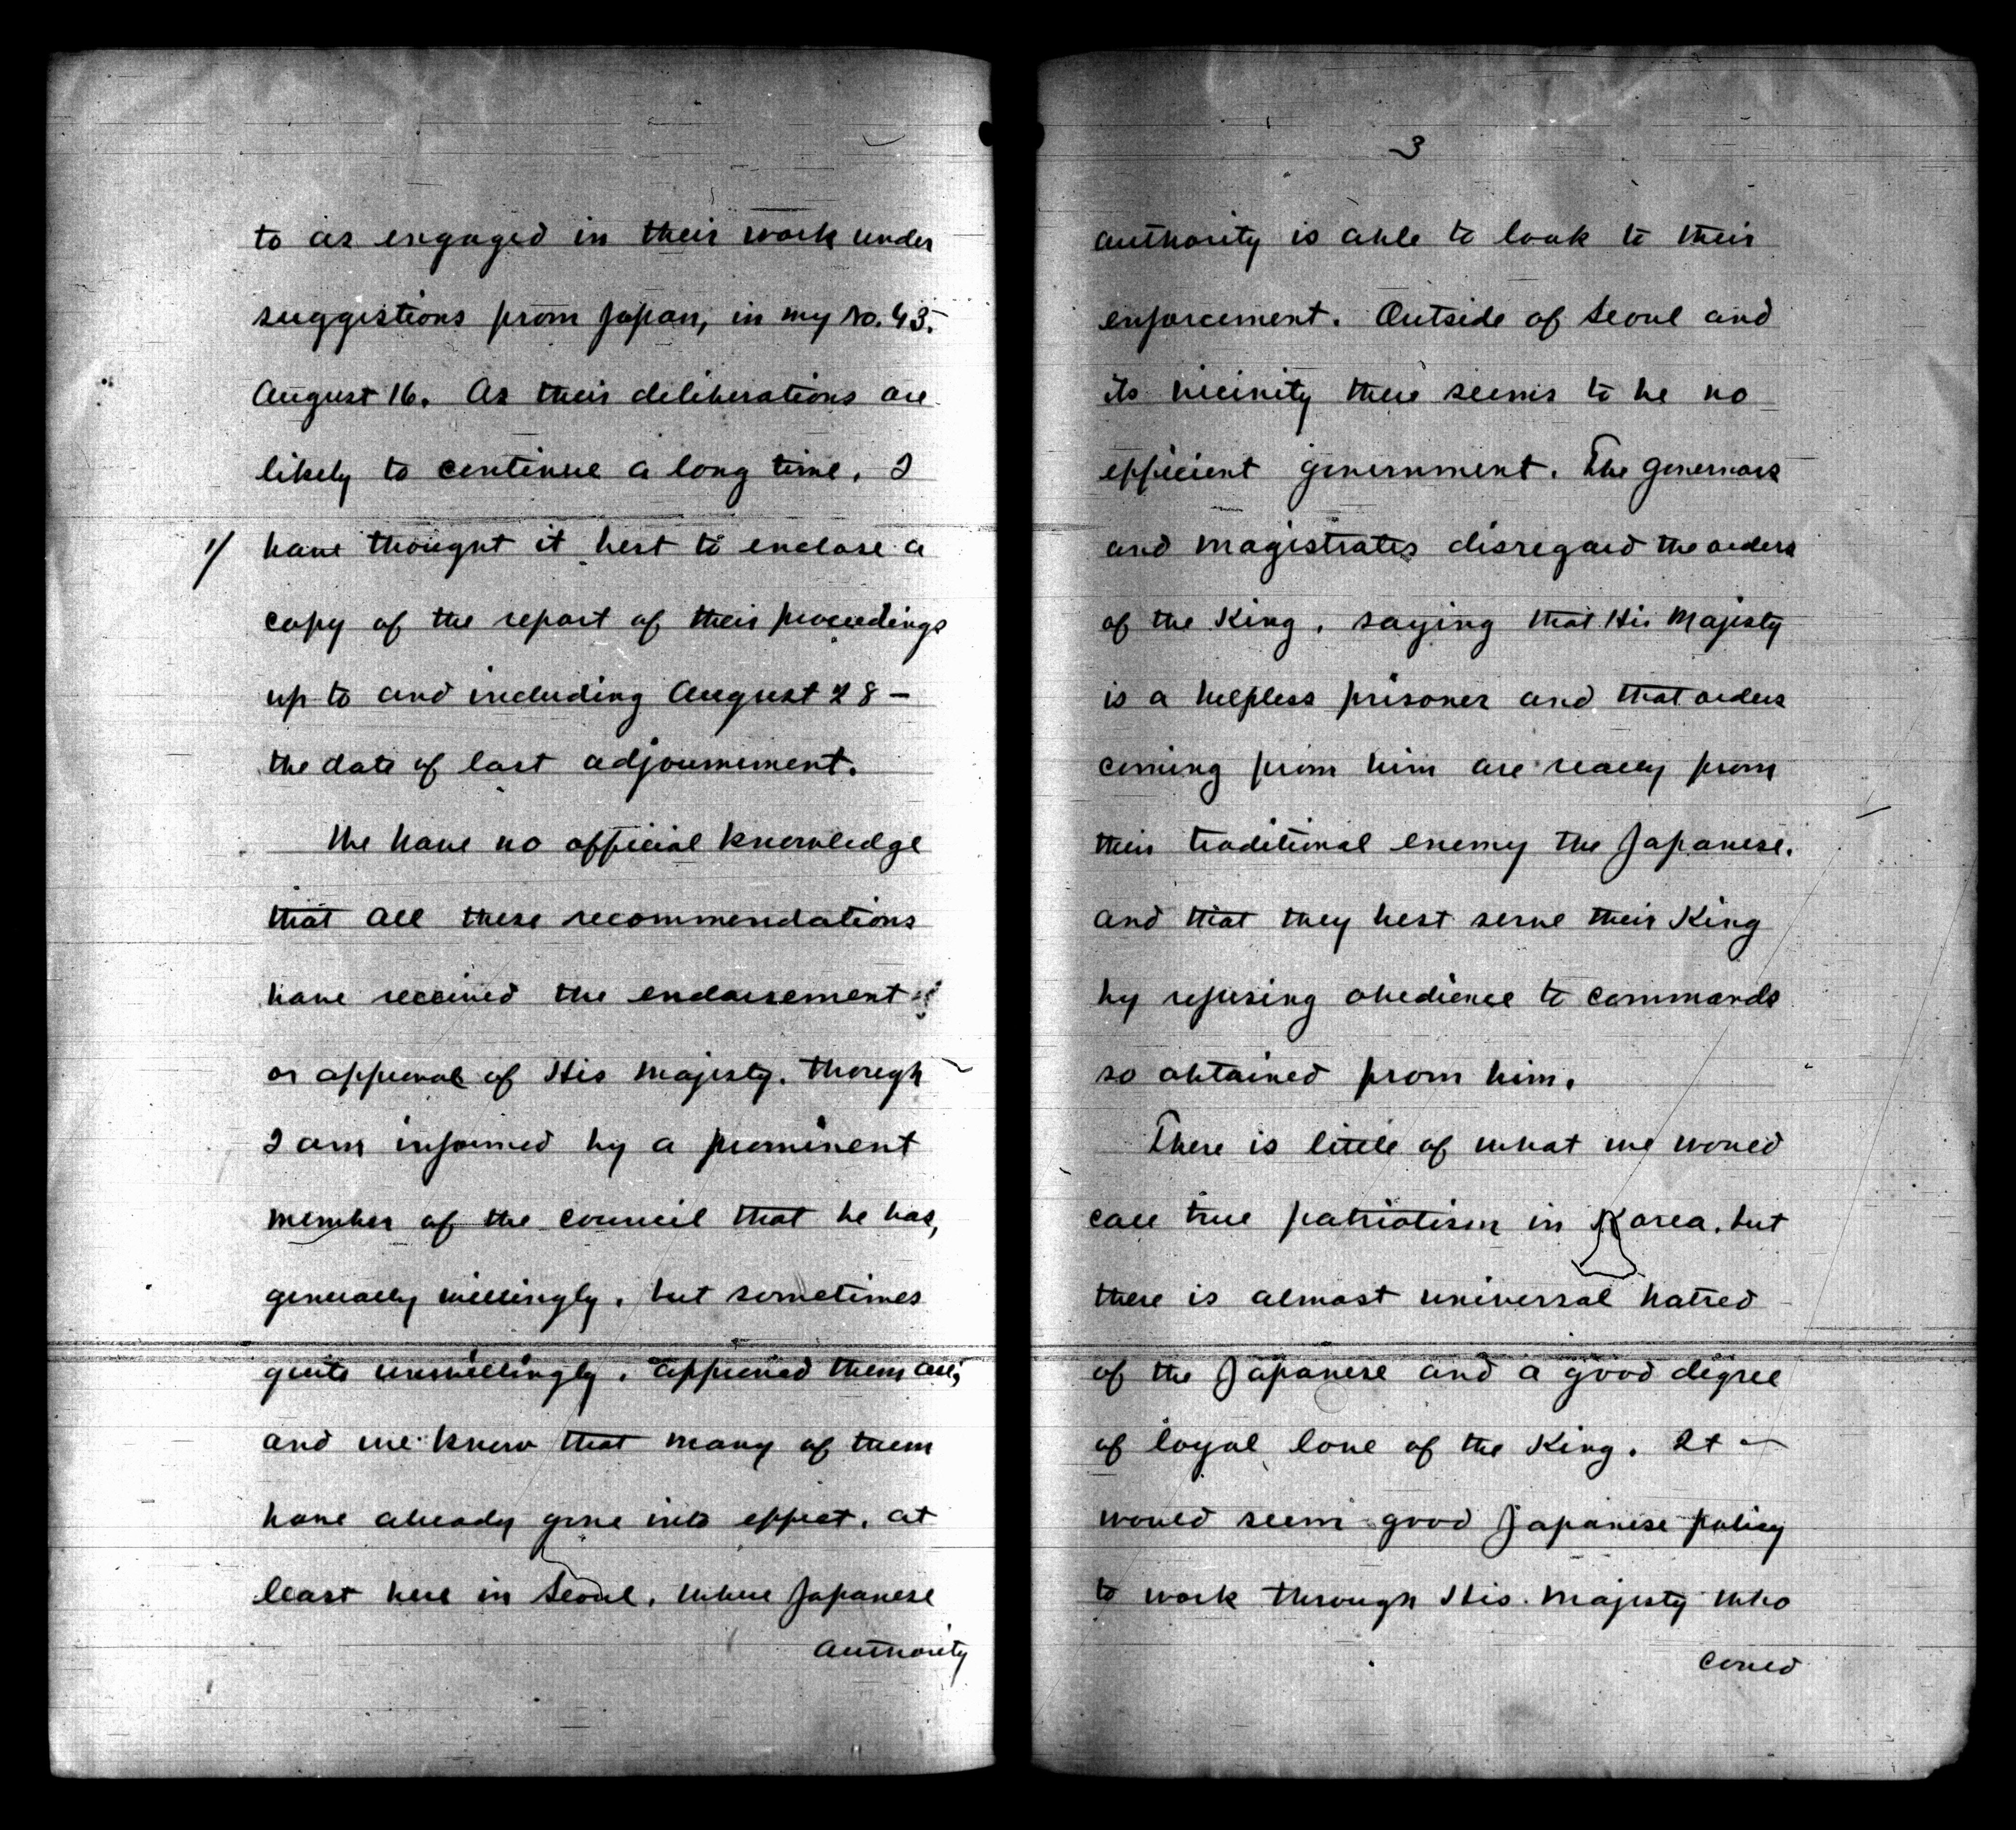 to as engaged in their work under
suggestions from Japan, in my No. 43.
August 16. As their deliberations are
likely to continue a long time, I
1/ have thought it best to enclose a
copy of the report of their proceedings
up to and including August 28 –
the date of last adjournment.
We have no official knowledge
that all these recommendations
have received the endorsement
or approval of His Majesty, though
I am informed by a prominent
member of the council that he has,
generally willingly, but sometimes
quite unwillingly, approved them all;
and we know that many of them
have already gone into effect, at
least here in Seoul, where Japanese
authority
3
authority is able to look to their
enforcement. Outside of Seoul and
its vicinity there seems to be no
efficient government. The governors
and magistrates disregard the orders
of the King, saying that His Majesty
is a helpless prisoner and that orders
coming from him are really from
their traditional enemy the Japanese,
and that they best serve their King
by refusing obedience to commands
so obtained from him.
There is little of what we would
call true patriotism in Korea, but
there is almost universal hatred
of the Japanese and a good degree
of loyal love of the King. It
would seem good Japanese policy
to work through His Majesty who
could